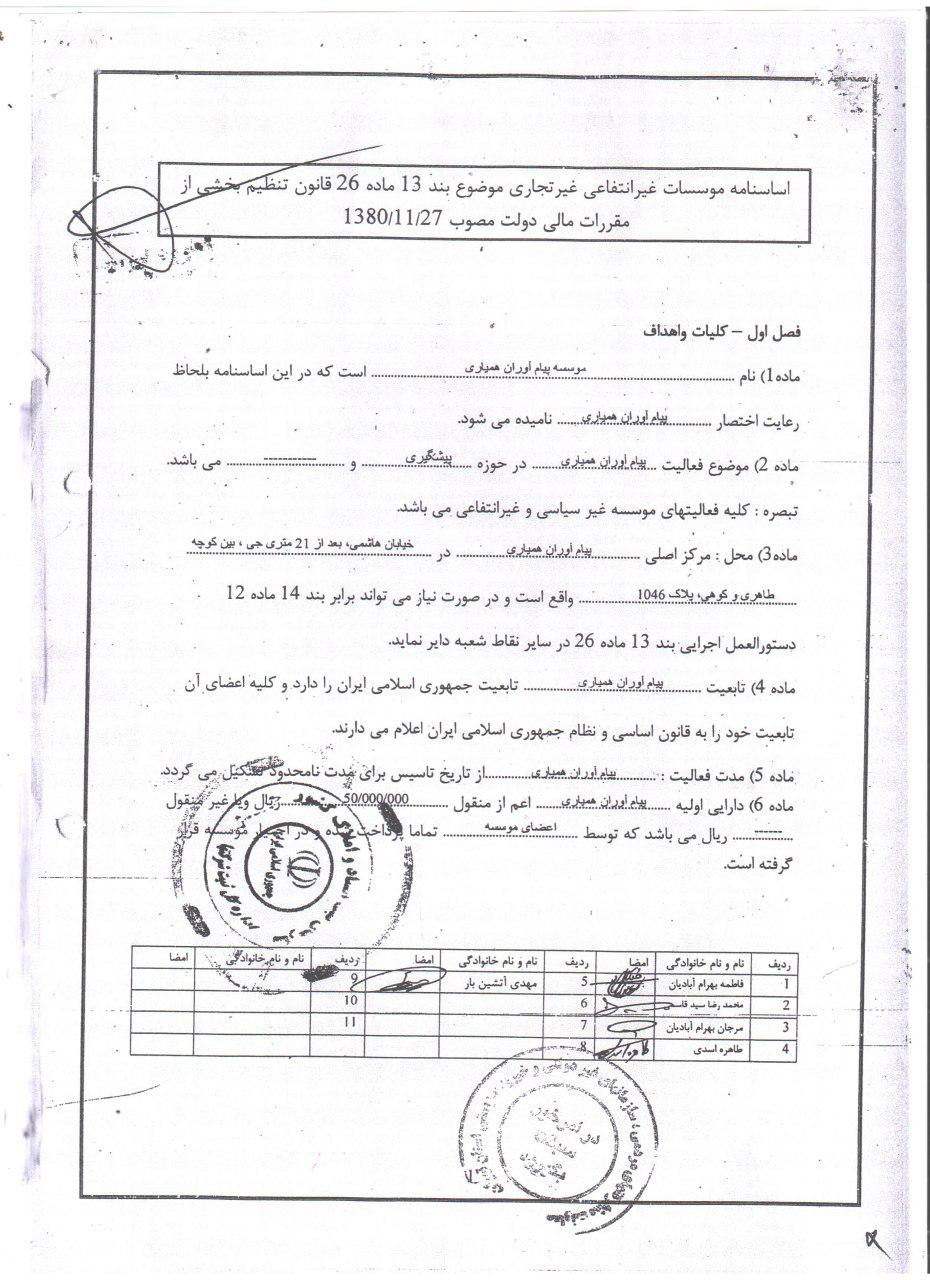 اساسنامه موسسات غیرانتفاعی غیرتجاری موضوع بند 13 ماده 26 قانون تنظیم بخشی از
مقررات مالی دولت مصوب 1380/11/27
فصل اول – کلیات واهداف
ماده1) نام ........ موسسه پیام آوران همیاری ........ است که در این اساسنامه بلحاظ
رعایت اختصار ........ پیام آوران همیاری ........ نامیده می شود.
ماده 2) موضوع فعالیت ...... پیام آوران همیاری ...... در حوزه ...... پیشگیری ...... و ...... ----------- ...... می باشد.
تبصره : کلیه فعالیتهای موسسه غیر سیاسی و غیرانتفاعی می باشد.
ماده3) محل : مرکز اصلی ...... پیام آوران همیاری ...... در ...... خیابان هاشمی، بعد از 21 متری جی ، بین کوچه
طاهری و کوهی، پلاک 1046 ........ واقع است و در صورت نیاز می تواند برابر بند 14 ماده 12
دستورالعمل اجرایی بند 13 ماده 26 در سایر نقاط شعبه دایر نماید.
ماده 4) تابعیت ...... پیام آوران همیاری ...... تابعیت جمهوری اسلامی ایران را دارد و کلیه اعضای آن
تابعیت خود را به قانون اساسی و نظام جمهوری اسلامی ایران اعلام می دارند.
ماده 5) مدت فعالیت : ...... پیام آوران همیاری ......از تاریخ تاسیس برای مدت نامحدود تشکیل می گردد.
ماده 6) دارایی اولیه ...... پیام آوران همیاری ...... اعم از منقول ...... 50/000/000 ...... ریال ویا غیر منقول
...... ------ ...... ریال می باشد که توسط ...... اعضای موسسه ...... تماما پرداخت شده و در اختیار موسسه قرار
گرفته است.
ردیف نام و نام خانوادگی امضا ردیف نام و نام خانوادگی امضا ردیف نام و نام خانوادگی امضا
1 فاطمه بهرام آبادیان 5 مهدی آتشین بار 9
2 محمد رضا سید قاسم 6 10
3 مرجان بهرام آبادیان 7 11
4 طاهره اسدی 8
جمهوری اسلامی ایران